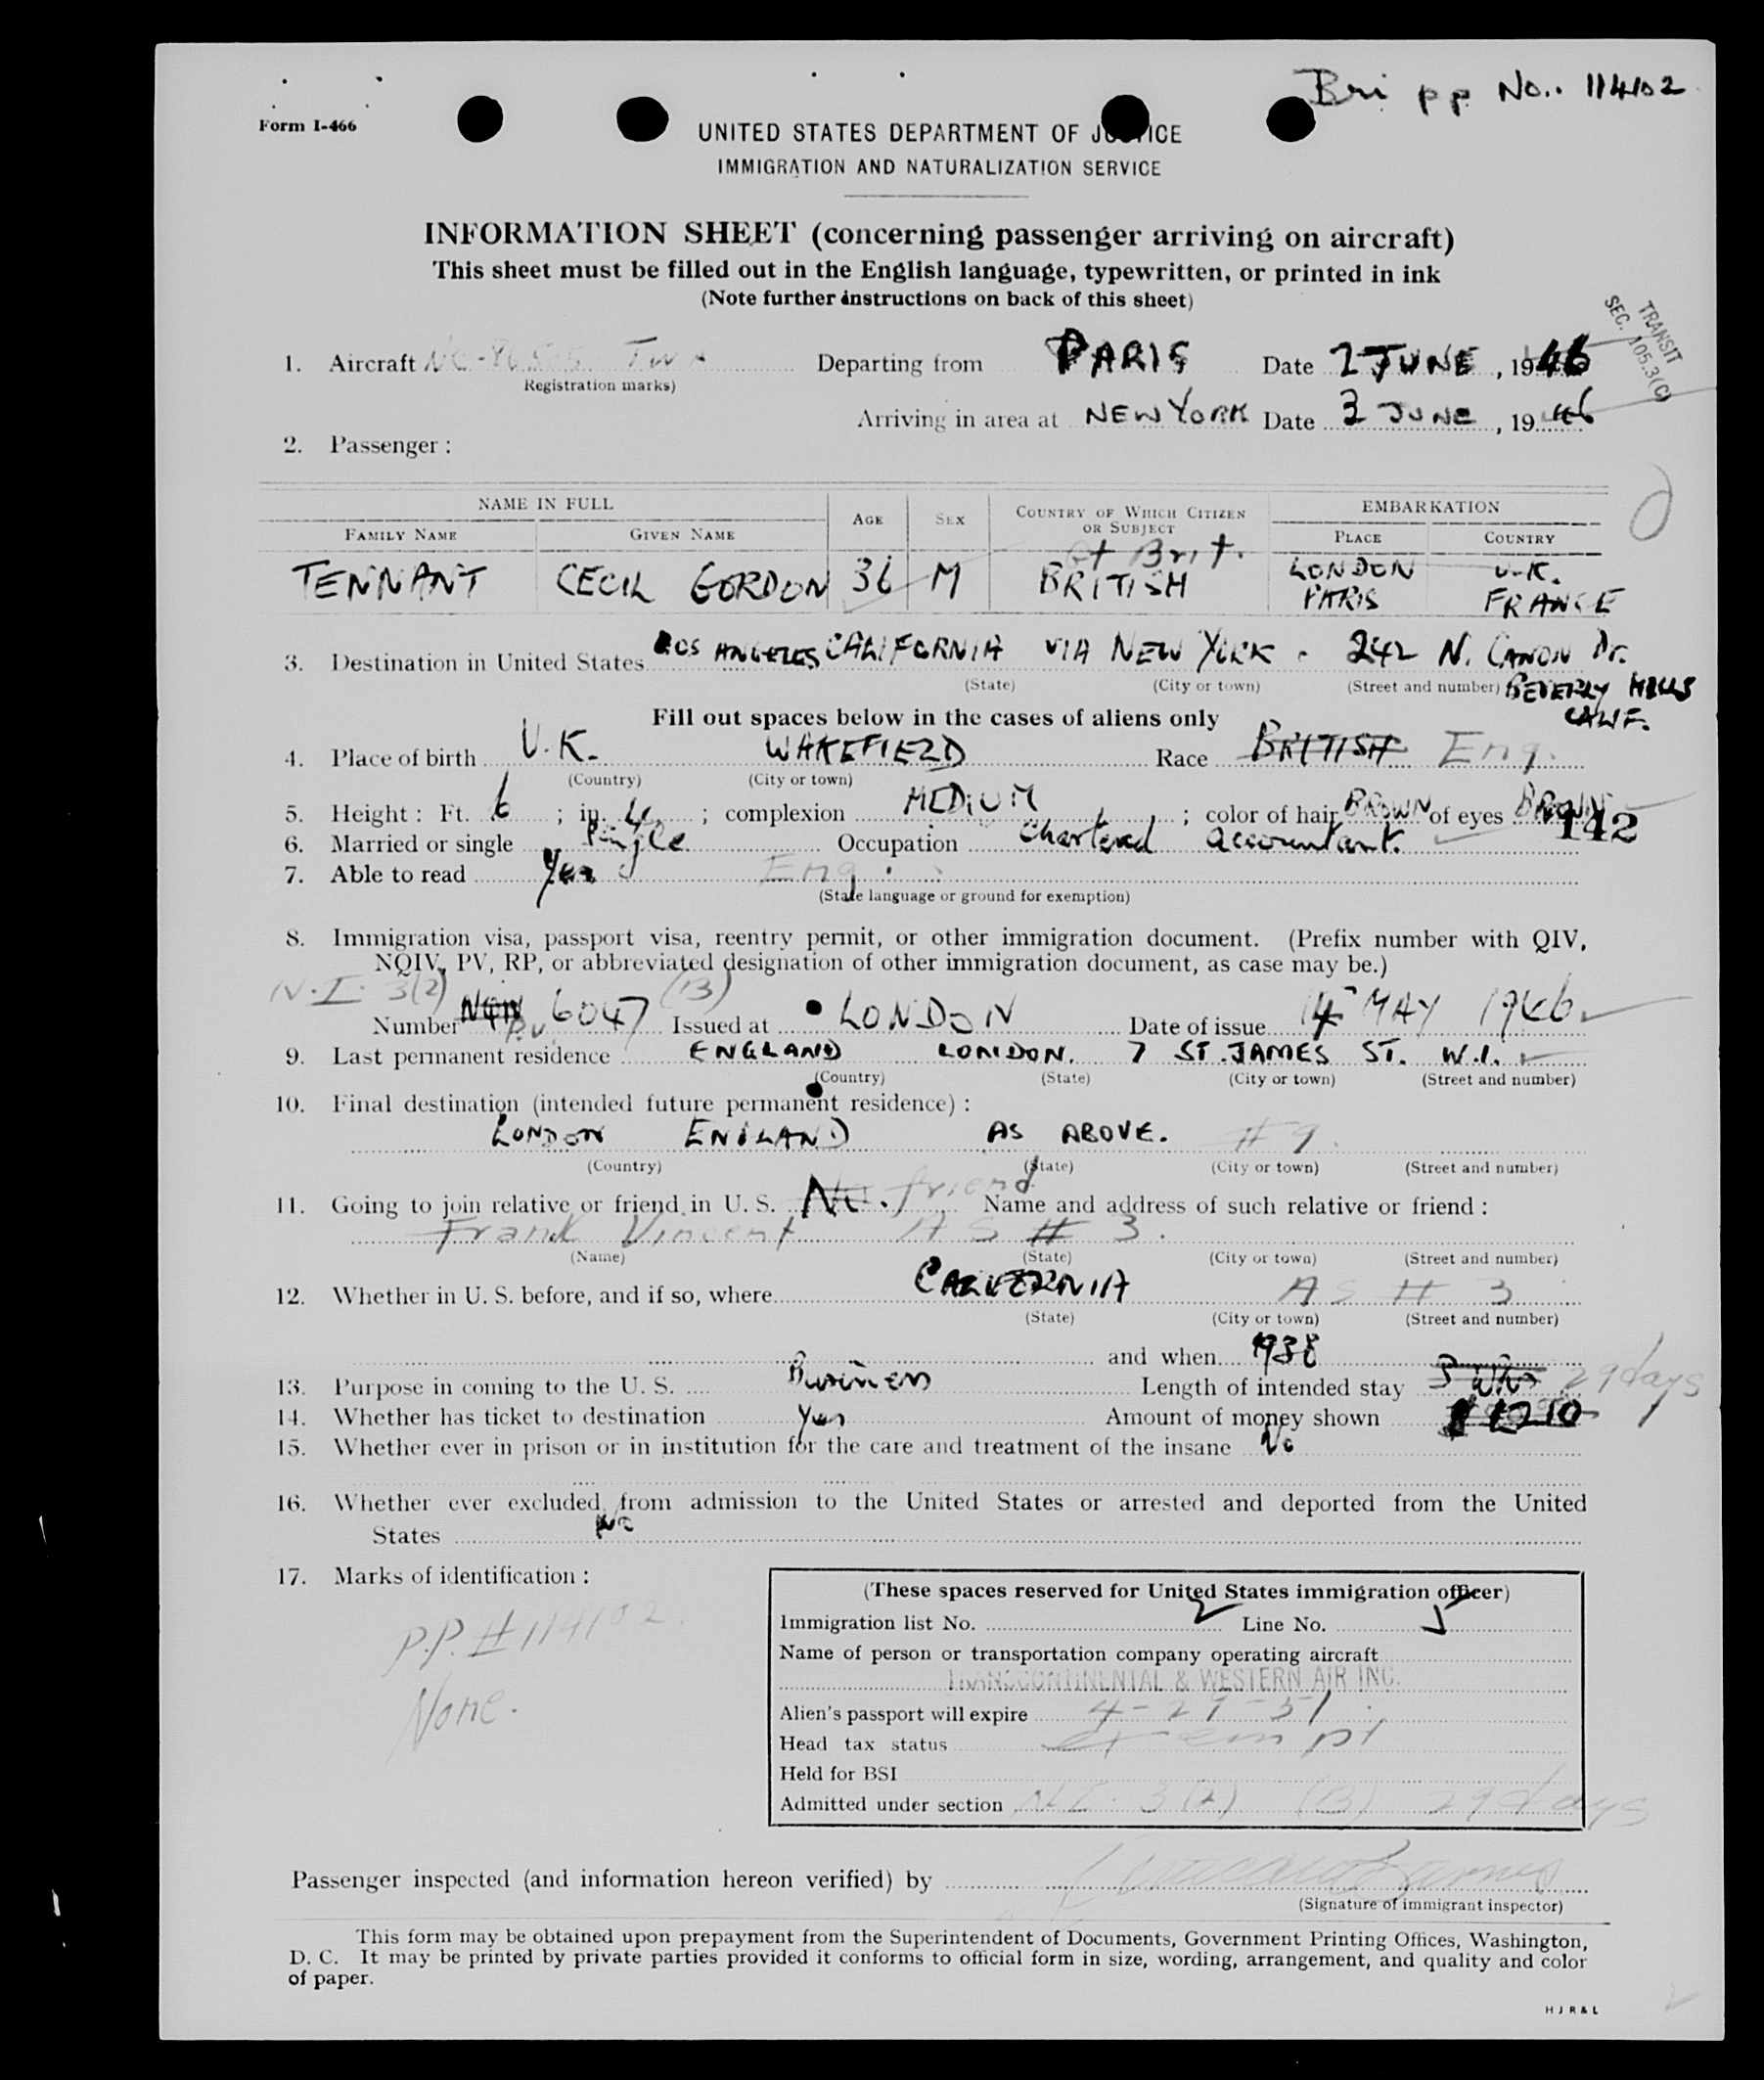 Bri pp No. 114102
Form I-466
UNITED STATES DEPARTMENT OF JUSTICE
IMMIGRATION AND NATURALIZATION SERVICE
INFORMATION SHEET (concerning passenger arriving on aircraft)
This sheet must be filled out in the English language, typewritten, or printed in ink
(Note further instructions on back of this sheet)
TRANSIT
SEC. 105.3(C)
1. Aircraft TWA Departing from PARIS Date 2 JUNE, 1946
Registration marks)
Arriving in area at NEW YORK Date 3 JUNE, 1946
2. Passenger :
NAME IN FULL AGE SEX COUNTRY OF WHICH CITIZEN OR SUBJECT EMBARKATION
FAMILY NAME GIVEN NAME PLACE COUNTRY
Gt Brit.
TENNANT CECIL GORDON 36 M BRITISH LONDON U.K.
PARIS FRANCE
3. Destination in United States LOS ANGELES CALIFORNIA VIA NEW YORK - 242 N. CANON Dr.
(State) (City or town) (Street and number) BEVERLY HILLS
CALIF.
Fill out spaces below in the cases of aliens only
4. Place of birth U.K. WAKEFIELD Race BRITISH Eng.
(Country) (City or town)
5. Height : Ft. 6 ; in. 4 ; complexion MEDIUM ; color of hair BROWN of eyes BROWN
142
6. Married or single Single Occupation Chartered Accountant.
7. Able to read Yes Eng.
(State language or ground for exemption)
8. Immigration visa, passport visa, reentry permit, or other immigration document. (Prefix number with QIV,
NQIV, PV, RP, or abbreviated designation of other immigration document, as case may be.)
N.I. 3(2) (B)
Number P.V. 6047 Issued at LONDON Date of issue 14 MAY 1946
9. Last permanent residence ENGLAND LONDON. 7 ST. JAMES ST. W.1.
(Country) (State) (City or town) (Street and number)
10. Final destination (intended future permanent residence) :
LONDON ENGLAND AS ABOVE. # 9.
(Country) (State) (City or town) (Street and number)
11. Going to join relative or friend in U. S. No. friend Name and address of such relative or friend :
Frank Vincent AS # 3.
(Name) (State) (City or town) (Street and number)
12. Whether in U. S. before, and if so, where CALIFORNIA AS # 3
(State) (City or town) (Street and number)
and when 1938
13. Purpose in coming to the U. S. Business Length of intended stay 3 wks 29 days
14. Whether has ticket to destination Yes Amount of money shown £210
15. Whether ever in prison or in institution for the care and treatment of the insane No
16. Whether ever excluded from admission to the United States or arrested and deported from the United
States No
17. Marks of identification :
P.P. # 114102.
None.
(These spaces reserved for United States immigration officer)
Immigration list No. 2 Line No. 5
Name of person or transportation company operating aircraft
TRANSCONTINENTAL & WESTERN AIR INC.
Alien's passport will expire 4-29-51
Head tax status exempt
Held for BSI
Admitted under section N.I. 3(2) (B) 29 days
Passenger inspected (and information hereon verified) by
(Signature of immigrant inspector)
This form may be obtained upon prepayment from the Superintendent of Documents, Government Printing Offices, Washington,
D. C. It may be printed by private parties provided it conforms to official form in size, wording, arrangement, and quality and color
of paper.
H J R & L